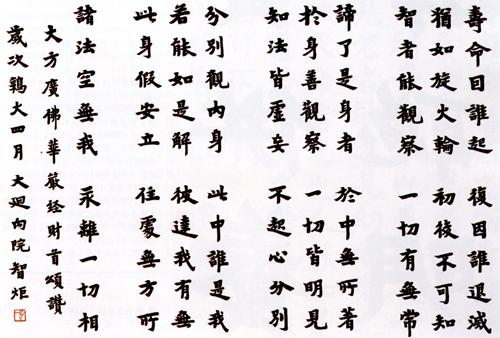 壽命囙誰起 復因誰退滅
猶如旋火輪 初後不可知
智者能觀察 一切有無常
諦了是身者 於中無所著
扵身善觀察 一切皆明見
知法皆虛妄 不起心分別
分別觀內身 此中誰是我
若能如是解 彼達我有無
此身假安立 住處無方所
諸法空無我 永離一切相
大方廣佛華嚴经財首頌讚
歲次鷄大四月 大廻向院智炬